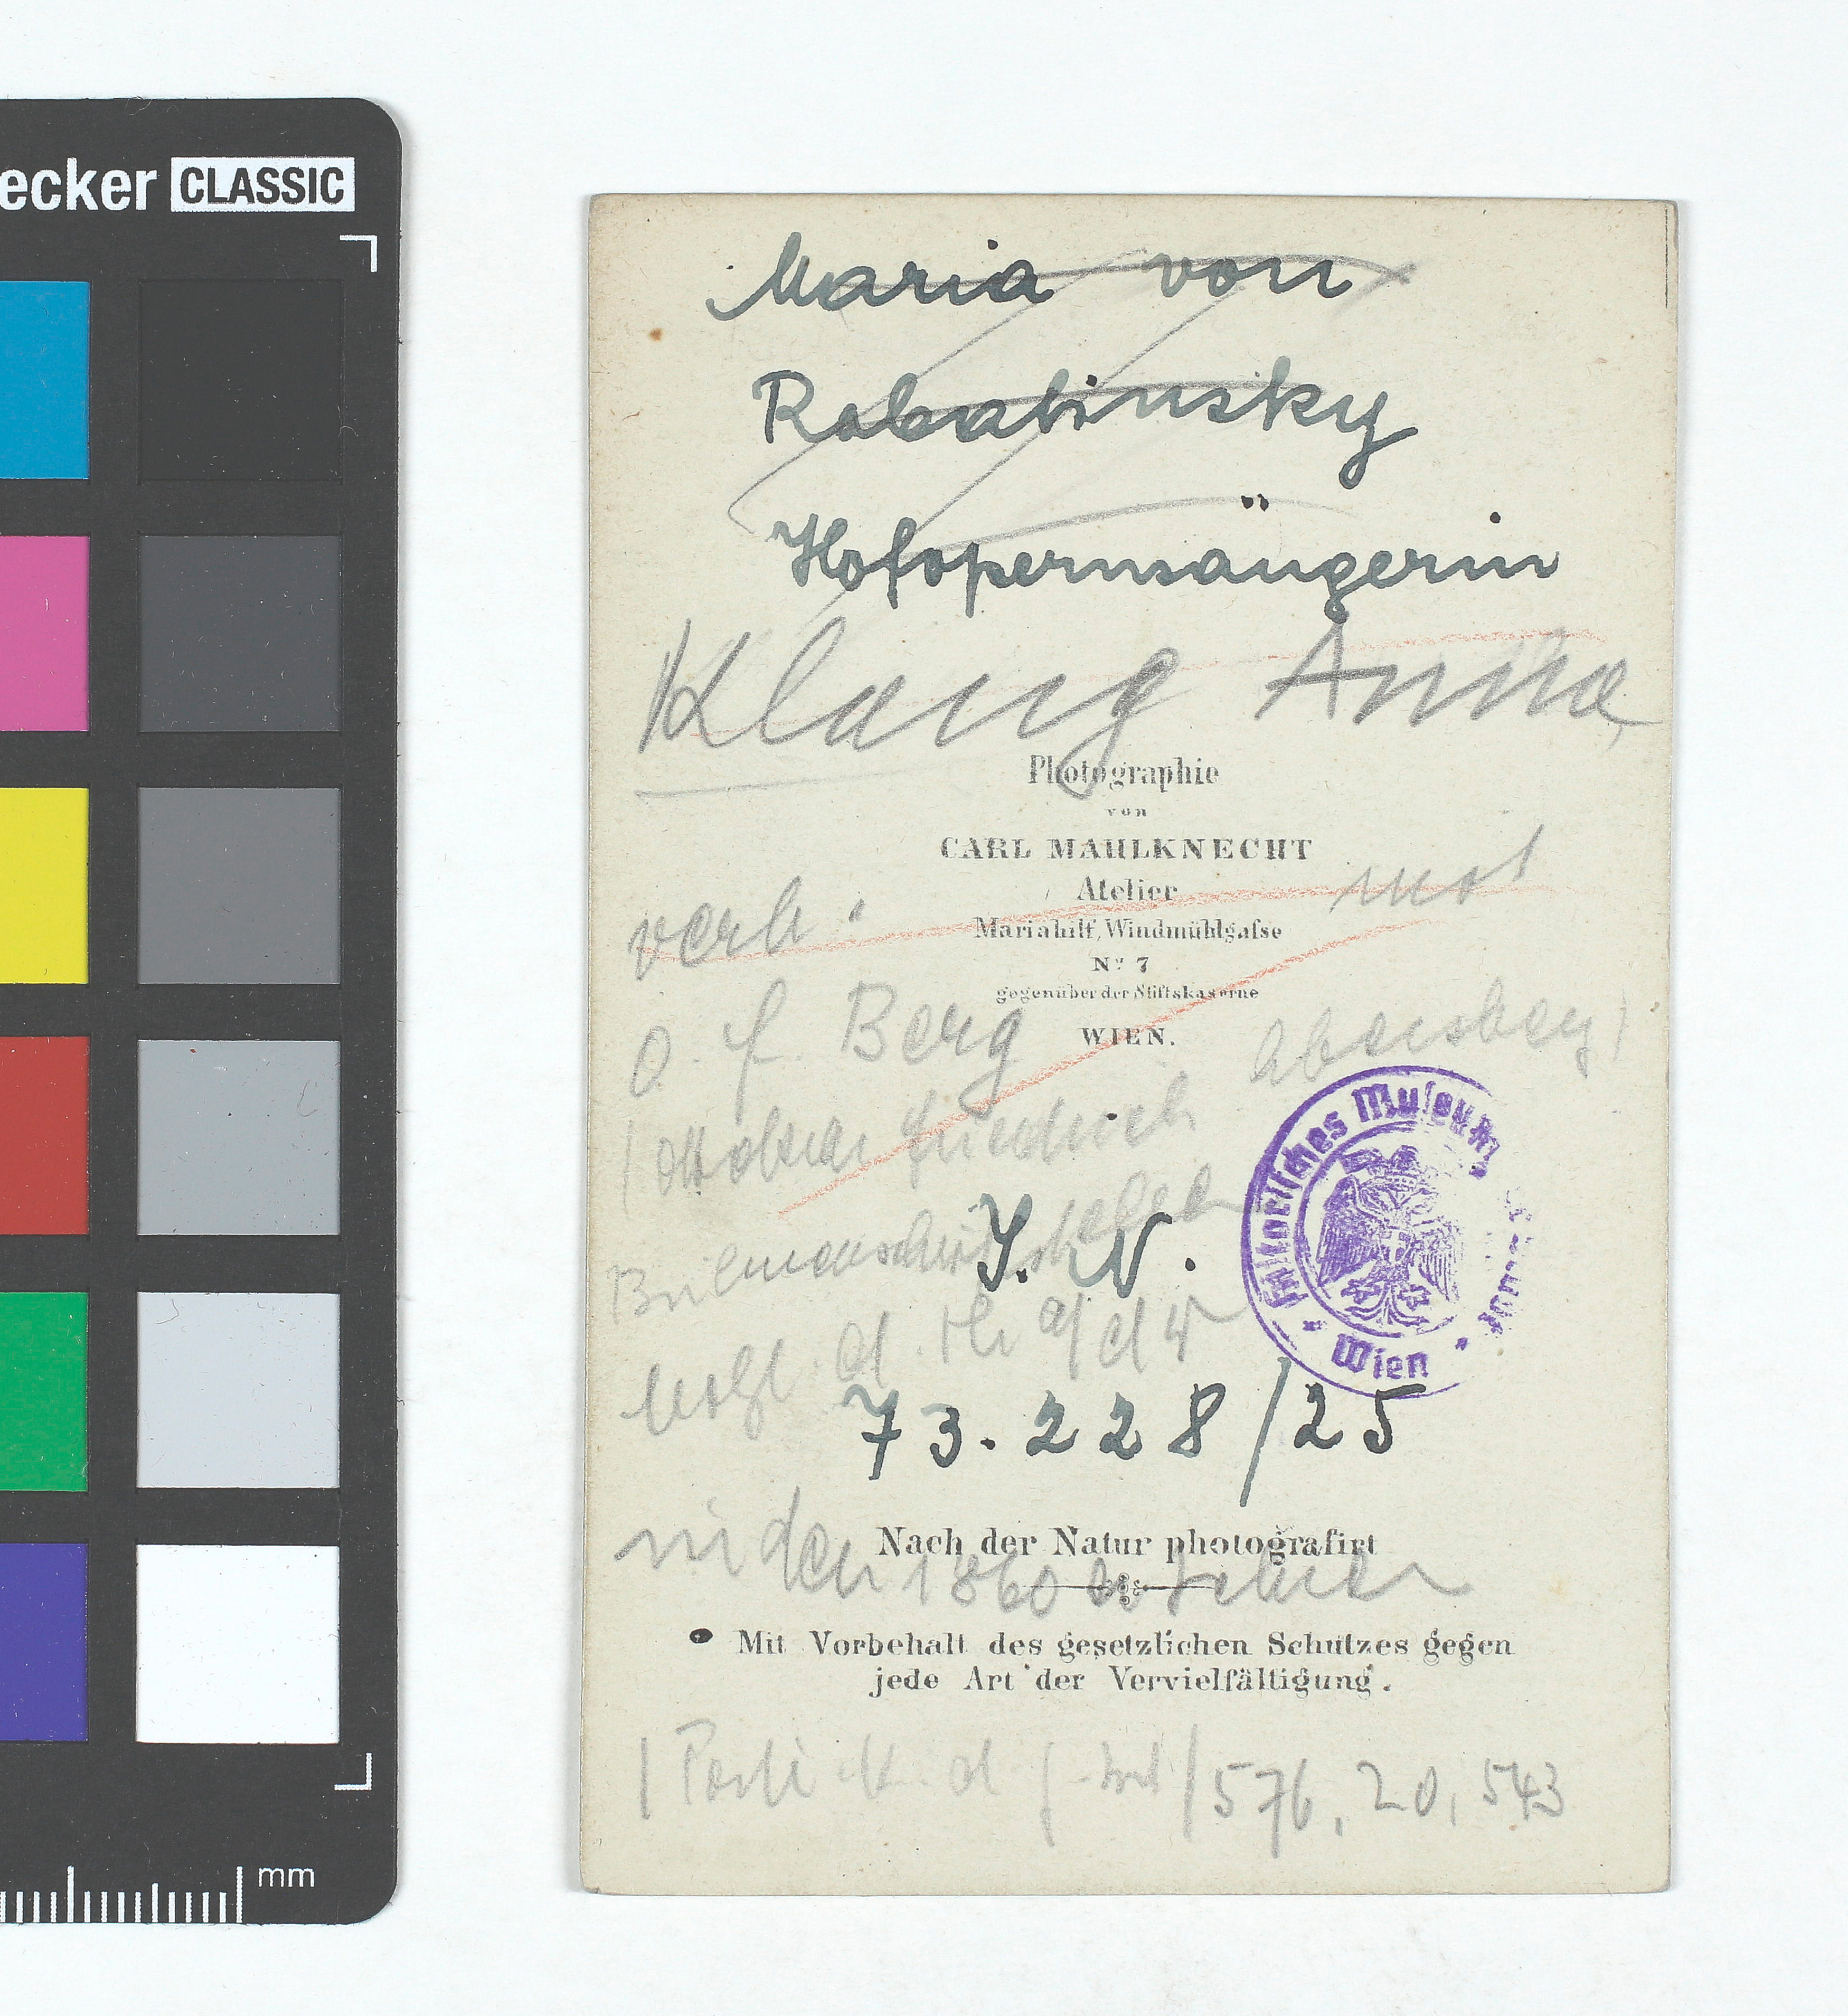 ecker CLASSIC
Maria von
Rabatinsky
Hofopernsängerin
Klang Anna,
Photographie
von
CARL MAHLKNECHT
Atelier
verh. mit
Mariahilf, Windmühlgaſse
No 7
gegenüber der Stiftskaserne
O. F. Berg
WIEN.
Ebersberg)
(Ottokar Friedrich
Historisches Museum
Wien
J. N.
73.228/25
in den 1860er Jahren
Nach der Natur photografirt
Mit Vorbehalt des gesetzlichen Schutzes gegen
jede Art der Vervielfältigung.
576, 20, 543
mm